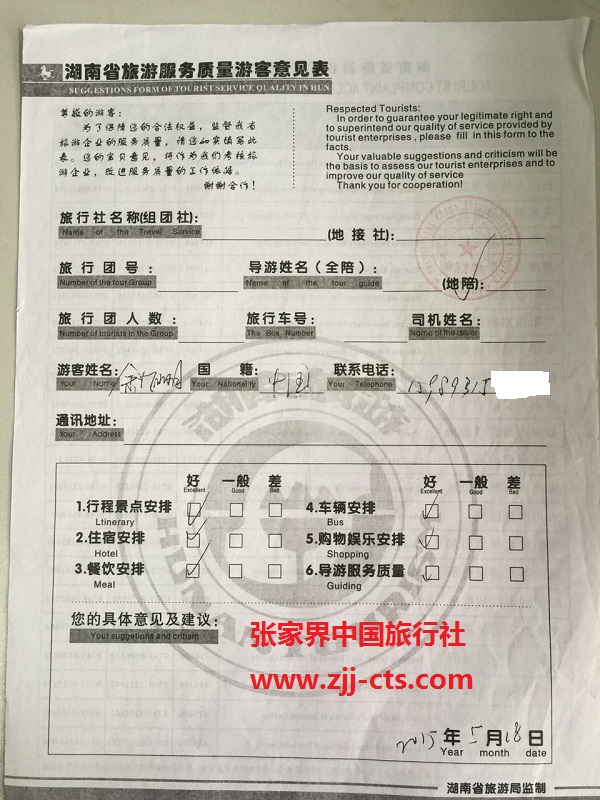 湖南省旅游服务质量游客意见表
SUGGESTIONS FORM OF TOURIST SERVICE QUALITY IN HUN
尊敬的游客:
为了保障您的合法权益,监督我省
旅游企业的服务质量,请您如实填写此
表。您的宝贝意见,将作为我们考核旅
游企业,改进服务质量的工作依据。
谢谢合作!
Respected Tourists:
In order to guarantee your legitimate right and
to superintend our quality of service provided by
tourist enterprises , please fill in this form to the
facts.
Your valuable suggestions and criticism will be
the basis to assess our tourist enterprises and to
improve our quality of service
Thank you for cooperation!
旅行社名称(组团社): (地 接 社):
Name of the Travel Service
旅 行 团 号 : 导游姓名(全陪): (地陪):
Number of the tour Group Name of the tour guide
旅 行 团 人 数 : 旅行车号: 司机姓名:
Number of tourists in the Group The Bus Number Name of the driver
游客姓名: 国 籍: 中国 联系电话:
Your Name Your Nationality Your Telephone
通讯地址:
Your Address
好 一般 差 好 一般 差
Excellent Good Bad Excellent Good Bad
1.行程景点安排 4.车辆安排
Ltinerary Bus
2.住宿安排 5.购物娱乐安排
Hotel Shopping
3.餐饮安排 6.导游服务质量
Meal Guiding
您的具体意见及建议:
Your suggetions and critism
张家界中国旅行社
www.zjj-cts.com
2015 年 5 月 18 日
Year month date
湖南省旅游局监制